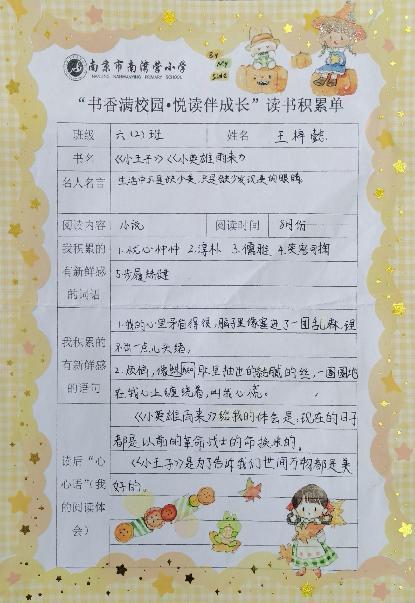 南京市南湾营小学
NANJING NANWANYING PRIMARY SCHOOL
BY
MY
SIDE
“书香满校园•悦读伴成长”读书积累单
班级 六(2)班 姓名 王梓懿
书名 《小王子》《小英雄雨来》
名人名言 生活中不是缺少美,只是缺少发现美的眼睛
阅读内容 小说 阅读时间 8月份
我积累的
有新鲜感
的词语
1.忧心忡忡 2.淳朴 3.儒雅 4.笑容可掬
5.步履矫健
我积累的
有新鲜感
的语句
1.我的心里矛盾得很,脑子里像塞进了一团乱麻,理
不出一点心头绪。
2.烦恼,像
里抽出的
的丝,一圈圈地
在我心上缠绕着,叫我心慌。
读后“心
心语”(我
的阅读体
会)
《小英雄雨来》给我的体会是:现在的日子
都是以前的革命战士的命换来的。
《小王子》是为了告诉我们世间万物都是美
好的。